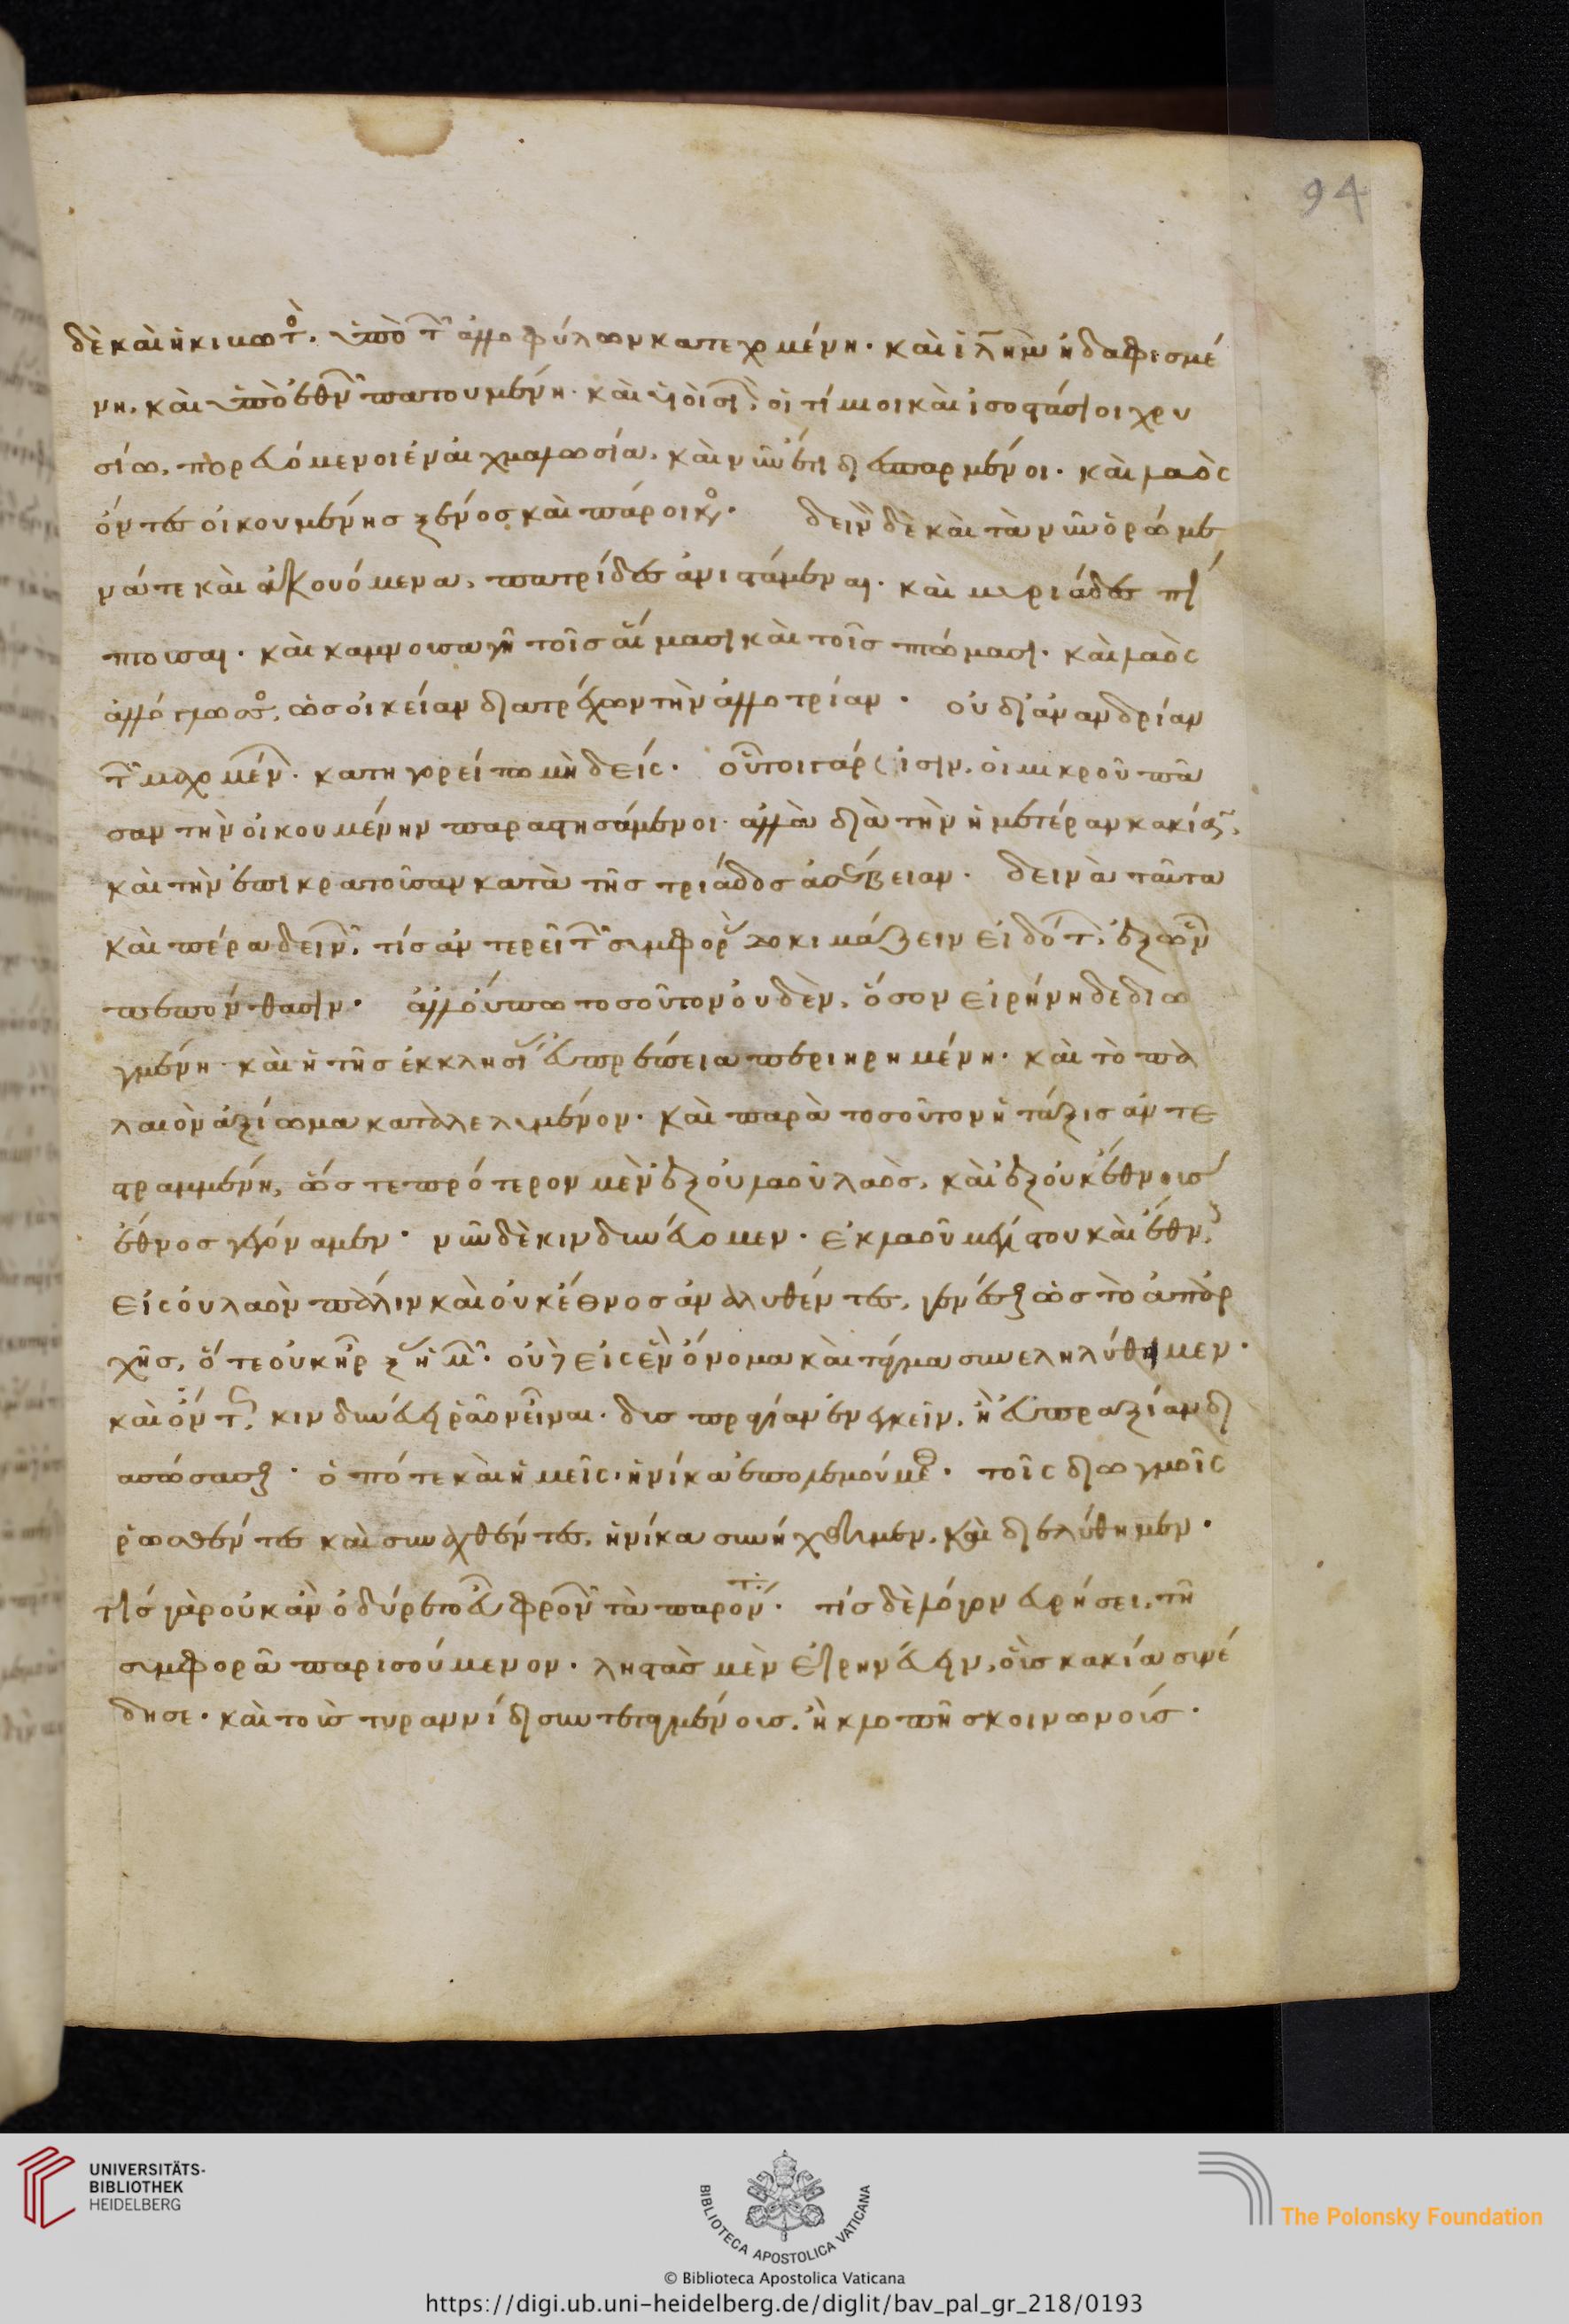 δὲ καὶ ἡ κιβωτὸς, ὑπὸ τῶν ἀλλοφύλων κατεχομένη· καὶ ἰλημ ἠδαφισμέ
νη, καὶ ὑπὸ ἐθνῶν πατουμένη· καὶ υἱοὶ σιὼν, οἱ τίμιοι καὶ ἰσοστάσιοι χρυ
σίω, πορευόμενοι ἐν αἰχμαλωσία, καὶ νῦν ἔτι διεσπαρμένοι. καὶ λαὸς
ὄντες οἰκουμένης ξένος καὶ πάροικος. δεινὰ δὲ καὶ τὰ νῦν ὁρώμε
νά τε καὶ ἀκουόμενα, πατρίδες ἀνιστάμεναι. καὶ μυριάδες πί
πτουσαι. καὶ κάμνουσα γῆ τοῖς αἵμασι καὶ τοῖς πτώμασι. καὶ λαὸς
ἀλλόγλωσσος, ὡς οἰκείαν διατρέχων τὴν ἀλλοτρίαν. οὐ δι' ἀνανδρίαν
τῶν μαχομένων. κατηγορείτω μηδείς. οὗτοι γάρ εἰσιν, οἱ μικροῦ πᾶ
σαν τὴν οἰκουμένην παραστησάμενοι· ἀλλὰ διὰ τὴν ἡμετέραν κακίαν,
καὶ τὴν ἐπικρατοῦσαν κατὰ τῆς τριάδος ἀσέβειαν. δεινὰ ταῦτα
καὶ πέρα δεινῶν, τίς ἀντερεῖ τῶν συμφορὰς δοκιμάζειν εἰδότων, ἐξ ὧν
πεπόνθασιν. ἀλλ' οὔπω τοσοῦτον οὐδὲν, ὅσον εἰρήνη δεδιω
γμένη· καὶ ἡ τῆς ἐκκλησίας εὐπρέπεια περιηρημένη. καὶ τὸ πα
λαιὸν ἀξίωμα καταλελυμένον. καὶ παρὰ τοσοῦτον ἡ τάξις ἀντε
στραμμένη, ὥστε πρότερον μὲν ἐξ οὐ λαοῦ λαὸς, καὶ ἐξ οὐκ ἔθνους
ἔθνος γεγόναμεν· νῦν δὲ κινδυνεύομεν. ἐκ λαοῦ μεγίστου καὶ ἔθνους,
εἰς οὐ λαὸν πάλιν καὶ οὐκ ἔθνος ἀναλυθέντες, γενέσθαι ὡς τὸ ἀπ' ἀρ
χῆς, ὅτε οὐκ ἦρξεν ἡμῶν. οὐδ' εἰς ἓν ὄνομα καὶ τάγμα συνεληλύθημεν.
καὶ ὄντως κινδυνεύει ῥᾶον εἶναι. δυσπραγίαν ἐνεγκεῖν, ἢ εὐπραξίαν δι
ασώσασθαι. ὁπότε καὶ ἡμεῖς, ἡνίκα ἐπολεμούμεθα. τοῖς διωγμοῖς
ῥωσθέντες καὶ συναχθέντες, ἡνίκα συνήχθημεν, καὶ διελύθημεν.
τίς γὰρ οὐκ ἂν ὀδύρετο εὖ φρονῶν τὰ παρόντα. τίς δὲ λόγον εὑρήσει, τῆ
συμφορᾶ παρισούμενον. ληστὰς μὲν εἰρηνεύειν, οἷς κακία συνέ
δησε. καὶ τοῖς τυραννίδι συντεταγμένοις, ἢ κλοπῆς κοινωνοῖς.
94
UNIVERSITÄTS-
BIBLIOTHEK
HEIDELBERG
BIBLIOTECA APOSTOLICA VATICANA
The Polonsky Foundation
© Biblioteca Apostolica Vaticana
https://digi.ub.uni-heidelberg.de/diglit/bav_pal_gr_218/0193